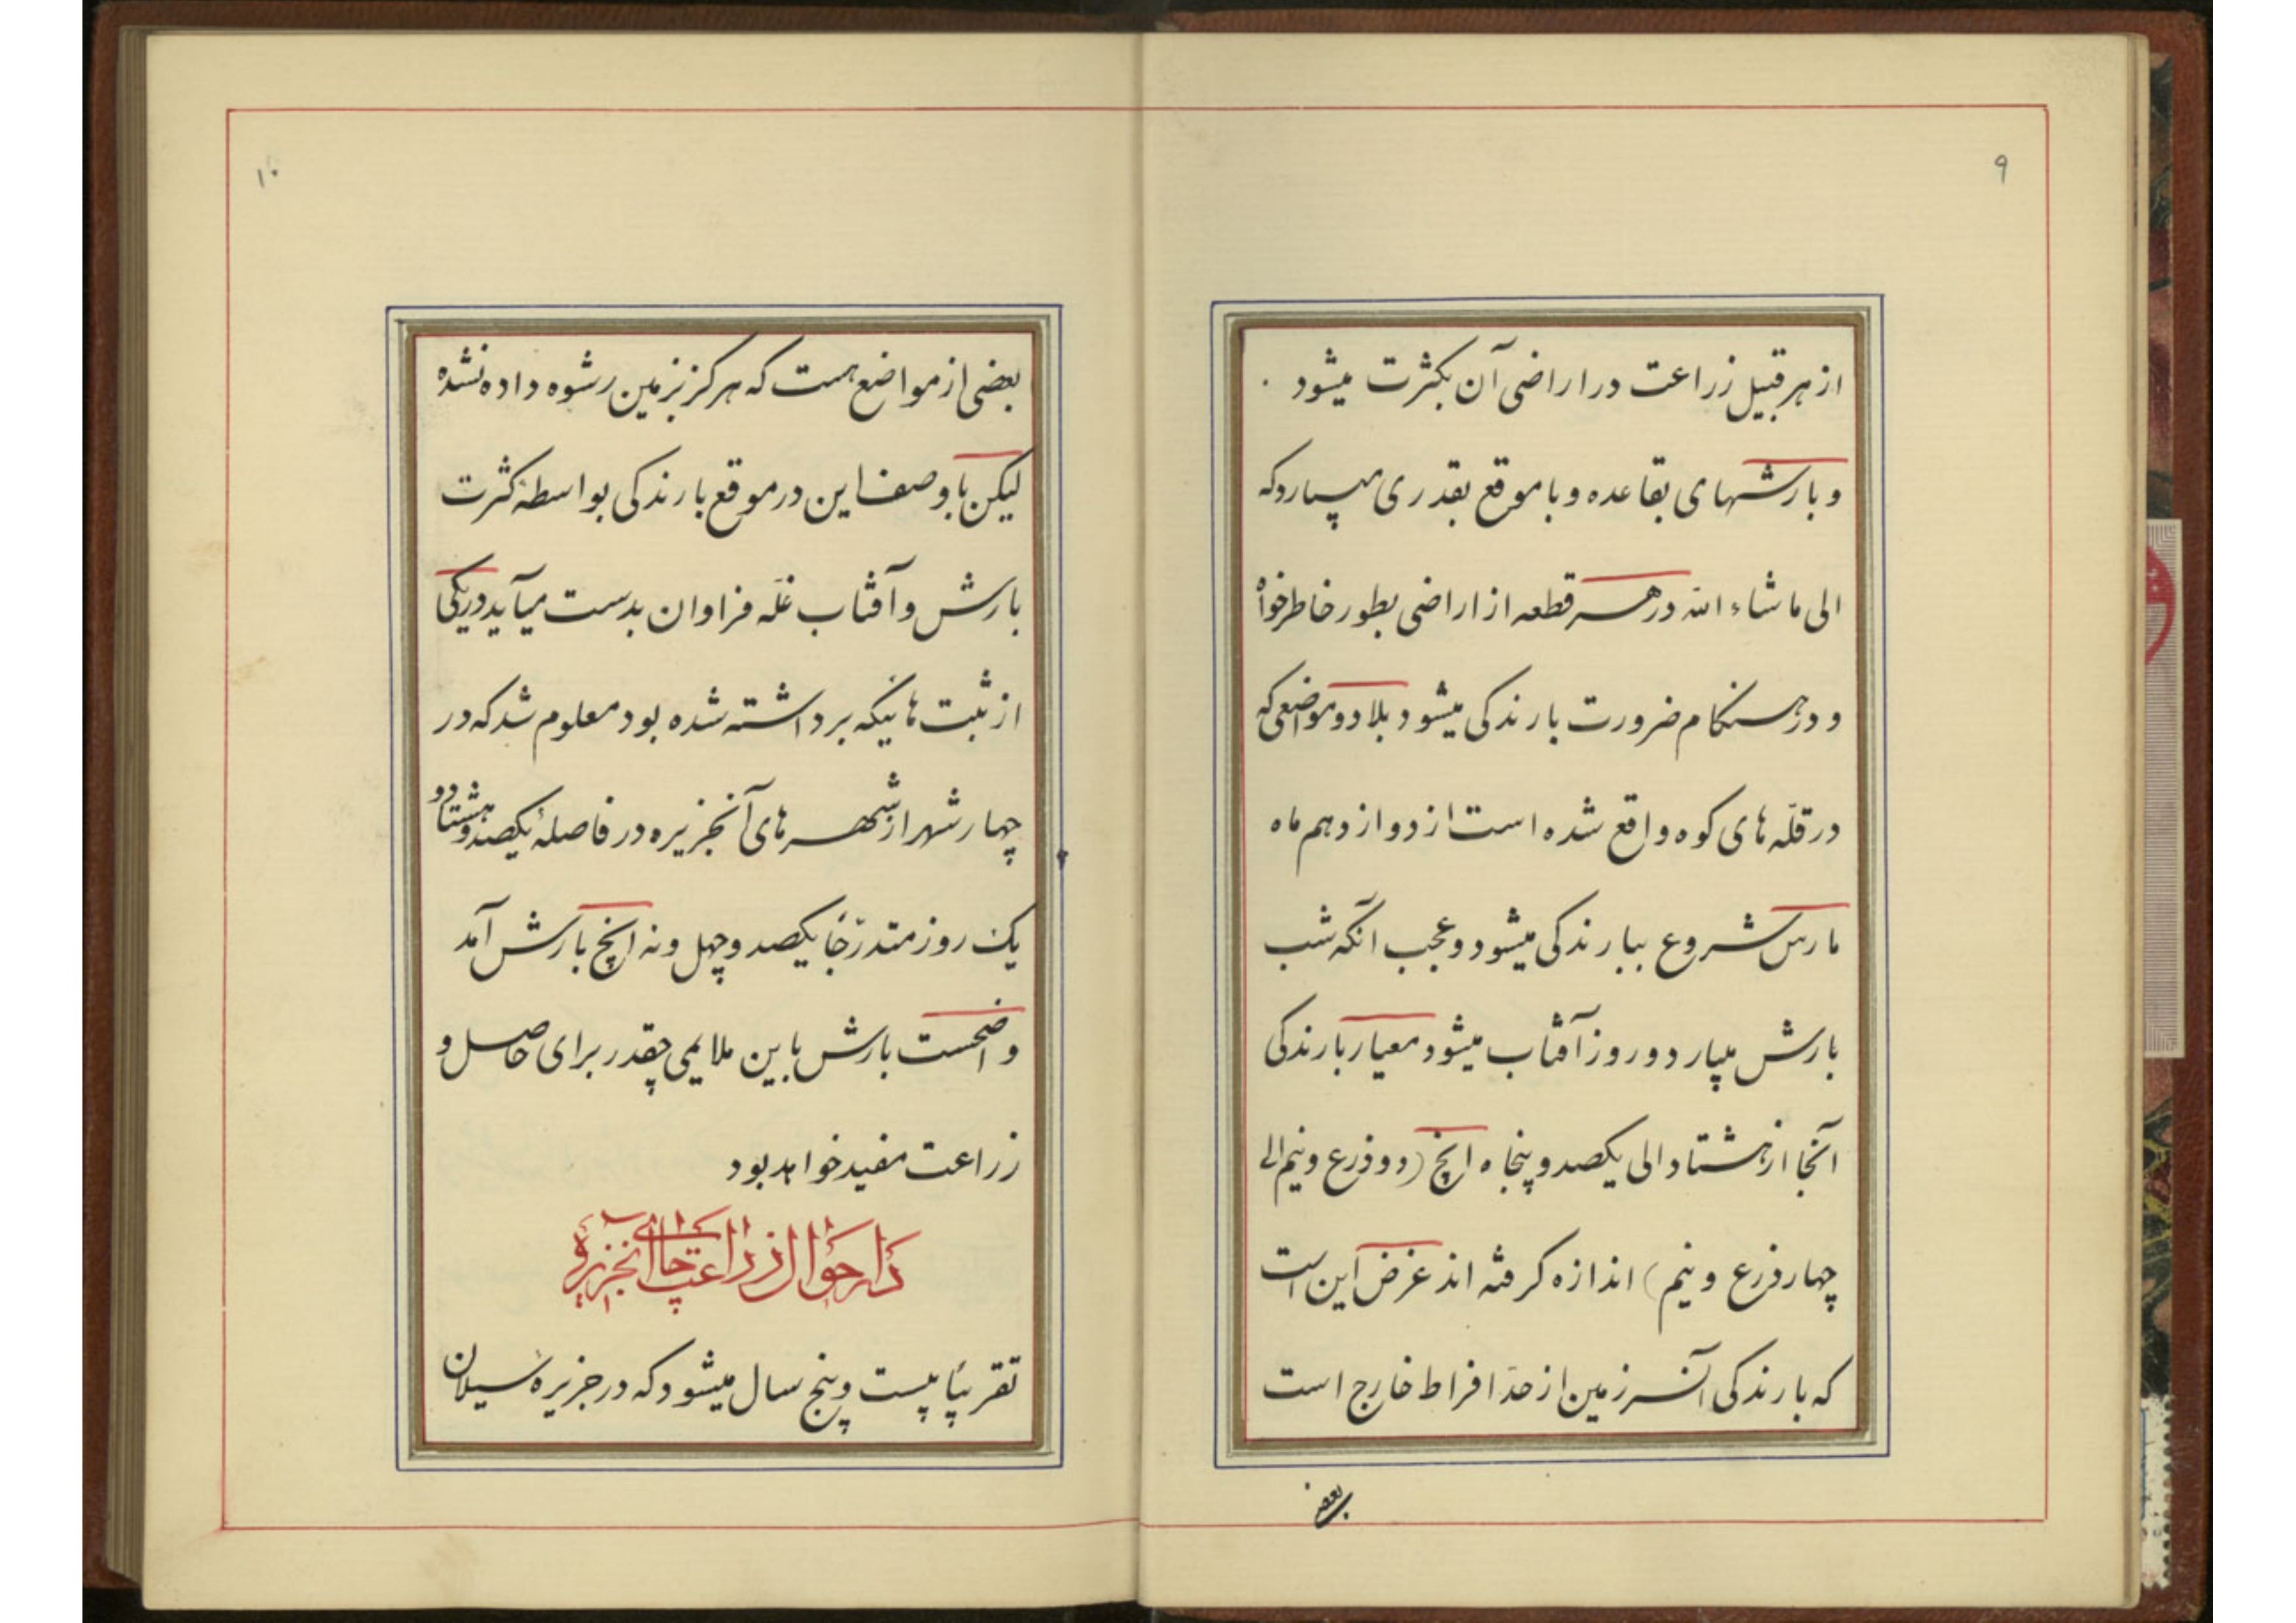 ۹
از هر قبیل زراعت در اراضی آن بکثرت میشود .
و بارشهای بقاعده و با موقع بقدری میبارد که
الی ماشاء الله در هر قطعه از اراضی بطور خاطرخواه
و در هنگام ضرورت بارندگی میشود بلاد و مواضعی که
در قلّه های کوه واقع شده است از دوازدهم ماه
مارس شروع ببارندگی میشود و عجب آنکه شب
بارش میبارد و روز آفتاب میشود معیار بارندگی
آنجا از هشتاد الی یکصد و پنجاه انچ (دو ذرع و نیم الی
چهار ذرع و نیم) اندازه گرفته اند غرض این است
که بارندگی آنسرزمین از حدّ افراط خارج است
بعضی
۱۰
بعضی از مواضع هست که هرگز بزمین رشوه داده نشده
لیکن با وصف این در موقع بارندگی بواسطهٔ کثرت
بارش و آفتاب غلّه فراوان بدست میآید در یکی
از ثبت هائیکه برداشته شده بود معلوم شد که در
چهار شهر از شهرهای آنجزیره در فاصلهٔ یکصد و هشتاد و
یک روز متدرّجاً یکصد و چهل و نه انچ بارش آمد
واضحست بارش باین ملایمی چقدر برای حاصل و
زراعت مفید خواهد بود
در احوال زراعت چای آنجزیره
تقریباً بیست و پنج سال میشود که در جزیرهٔ سیلان